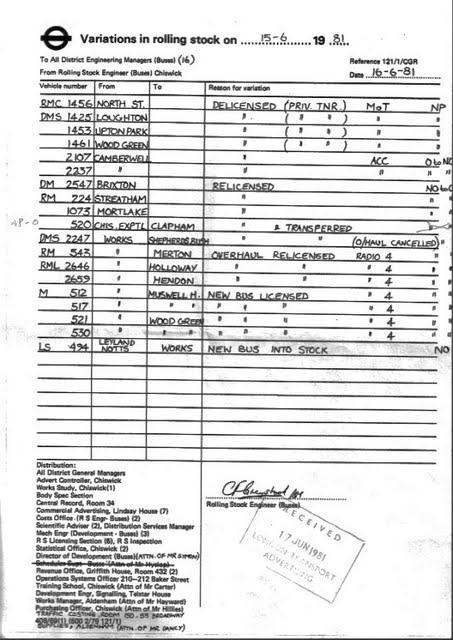 Variations in rolling stock on 15-6 19 81
To All District Engineering Managers (Buses) (16)
Reference 121/1/CGR
From Rolling Stock Engineer (Buses) Chiswick
Date 16-6-81
Vehicle number From To Reason for variation
RMC 1456 NORTH ST. DELICENSED (PRIV. TNR.) MOT NP
DMS 1425 LOUGHTON " ( " " ) " "
1453 UPTON PARK " ( " " ) " "
1461 WOOD GREEN " ( " " ) " "
2107 CAMBERWELL " ACC O to NO
2237 " " " "
DM 2547 BRIXTON RELICENSED NO to O
RM 224 STREATHAM " "
1073 MORTLAKE " "
48-0 520 CHIS. EXPTL CLAPHAM " & TRANSFERRED
DMS 2247 WORKS SHEPHERDS BUSH " " (O/HAUL CANCELLED) "
RM 543 " MERTON OVERHAUL RELICENSED RADIO 4 "
RML 2646 " HOLLOWAY " " " 4 "
2659 " HENDON " " " 4 "
M 512 " MUSWELL H. NEW BUS LICENSED " 4 "
517 " " " " " " " 4 "
521 " WOOD GREEN " " " " 4 "
530 " " " " " " 4 "
LS 494 LEYLAND NOTTS WORKS NEW BUS INTO STOCK NO
Distribution:
All District General Managers
Advert Controller, Chiswick
Works Study, Chiswick(1)
Body Spec Section
Central Record, Room 34
Commercial Advertising, Lindsay House (7)
Costs Office (R S Engr- Buses) (2)
Scientific Adviser (2), Distribution Services Manager
Mech Engr (Development - Buses) (3)
R S Licensing Section (6), R S Inspection
Statistical Office, Chiswick (2)
Director of Development (Buses) (ATTN. OF MR SYMON)
Schedules Supt - Buses (Attn of Mr Hyslop)
Revenue Office, Griffith House, Room 432 (2)
Operations Systems Officer 210-212 Baker Street
Training School, Chiswick (Attn of Mr Carter)
Development Engr, Signalling, Telstar House
Works Manager, Aldenham (Attn of Mr Hayward)
Purchasing Officer, Chiswick (Attn of Mr Hillies)
TRAFFIC COSTING, ROOM 50-55 BROADWAY
405/89(1) (500 2/79 121/1)
SUPPLIES, ALDENHAM (ATTN. OF MR DANCY)
Rolling Stock Engineer (Buses)
RECEIVED
17 JUN 1981
LONDON TRANSPORT
ADVERTISING